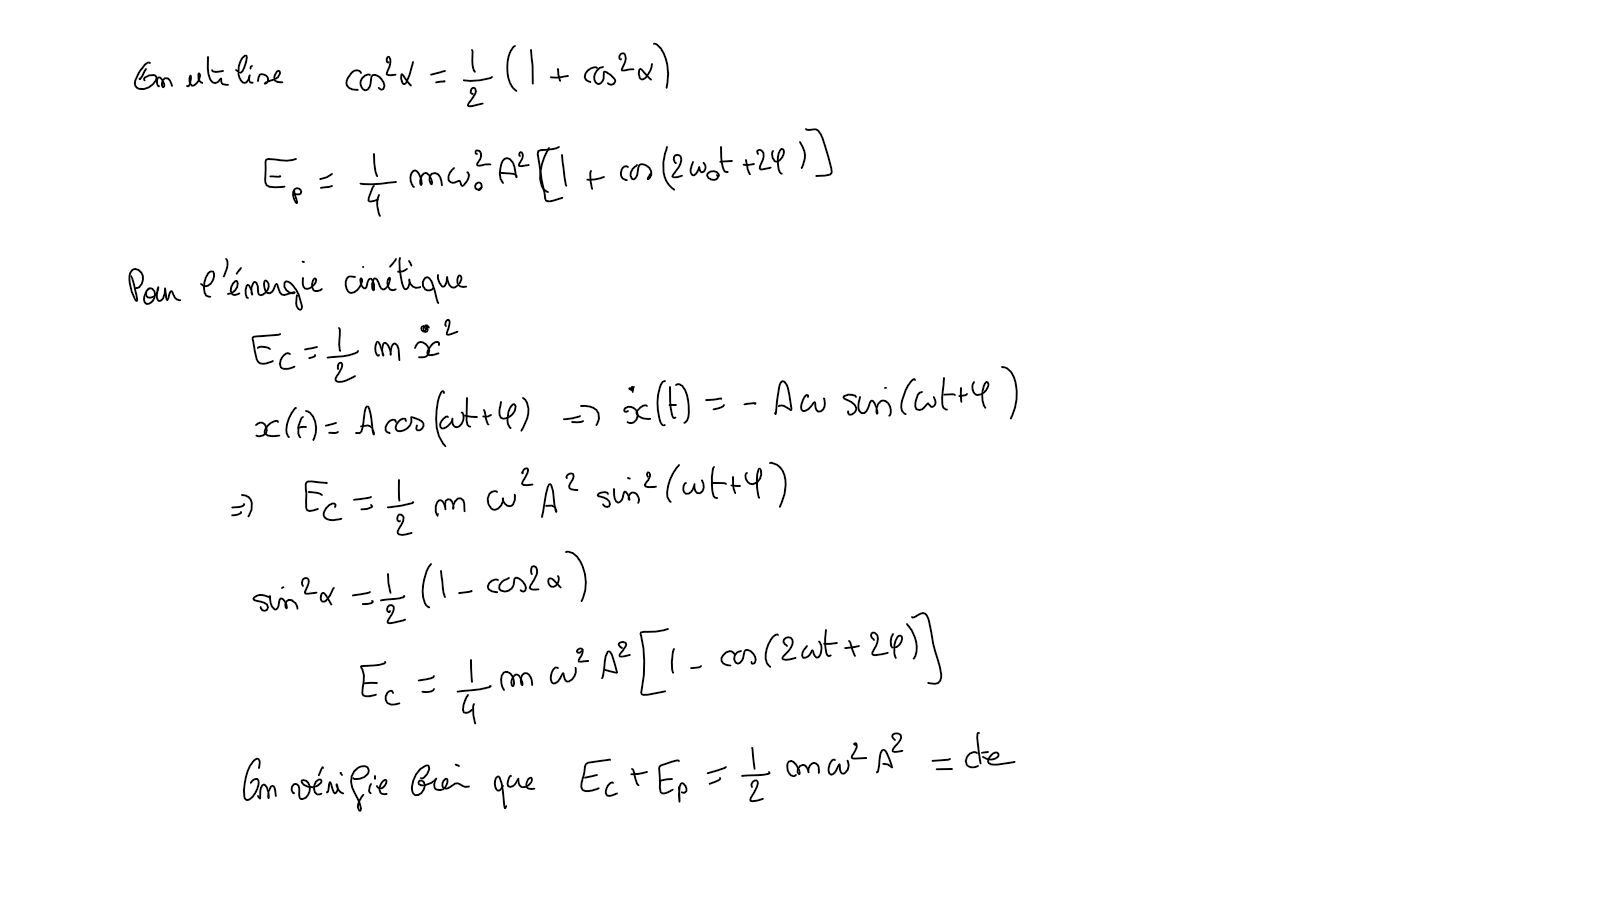 On utilise cos²α = 1/2 (1 + cos²α)
E_p = 1/4 mω₀² A² [1 + cos(2ω₀t + 2φ)]
Pour l'énergie cinétique
E_C = 1/2 m ẋ²
x(t) = A cos(ωt+φ) => ẋ(t) = - Aω sin(ωt+φ)
=> E_C = 1/2 m ω² A² sin²(ωt+φ)
sin²α = 1/2 (1 - cos2α)
E_C = 1/4 m ω² A² [1 - cos(2ωt + 2φ)]
On vérifie bien que E_C + E_p = 1/2 mω² A² = cte